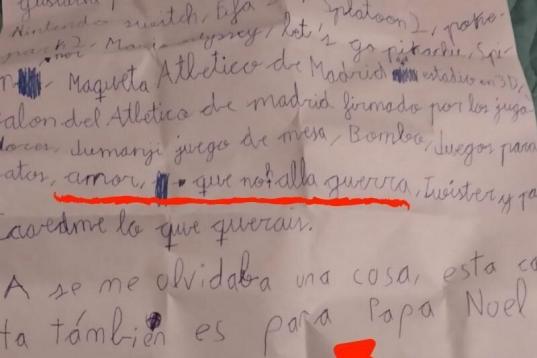 Nintendo switch, Fifa Splatoon 2, poke-
let's go pikachu, Spi-
- Maqueta Atletico de Madrid estadio en 3D,
alon del Atletico de madrid firmado por los juga
dores, Jumanyi juego de mesa, Bomba, Juegos para
atos, amor, - que no alla guerra, Twister y
Caaedme lo que querais.
A se me olvidaba una cosa, esta ca
ta también es para Papa Noel